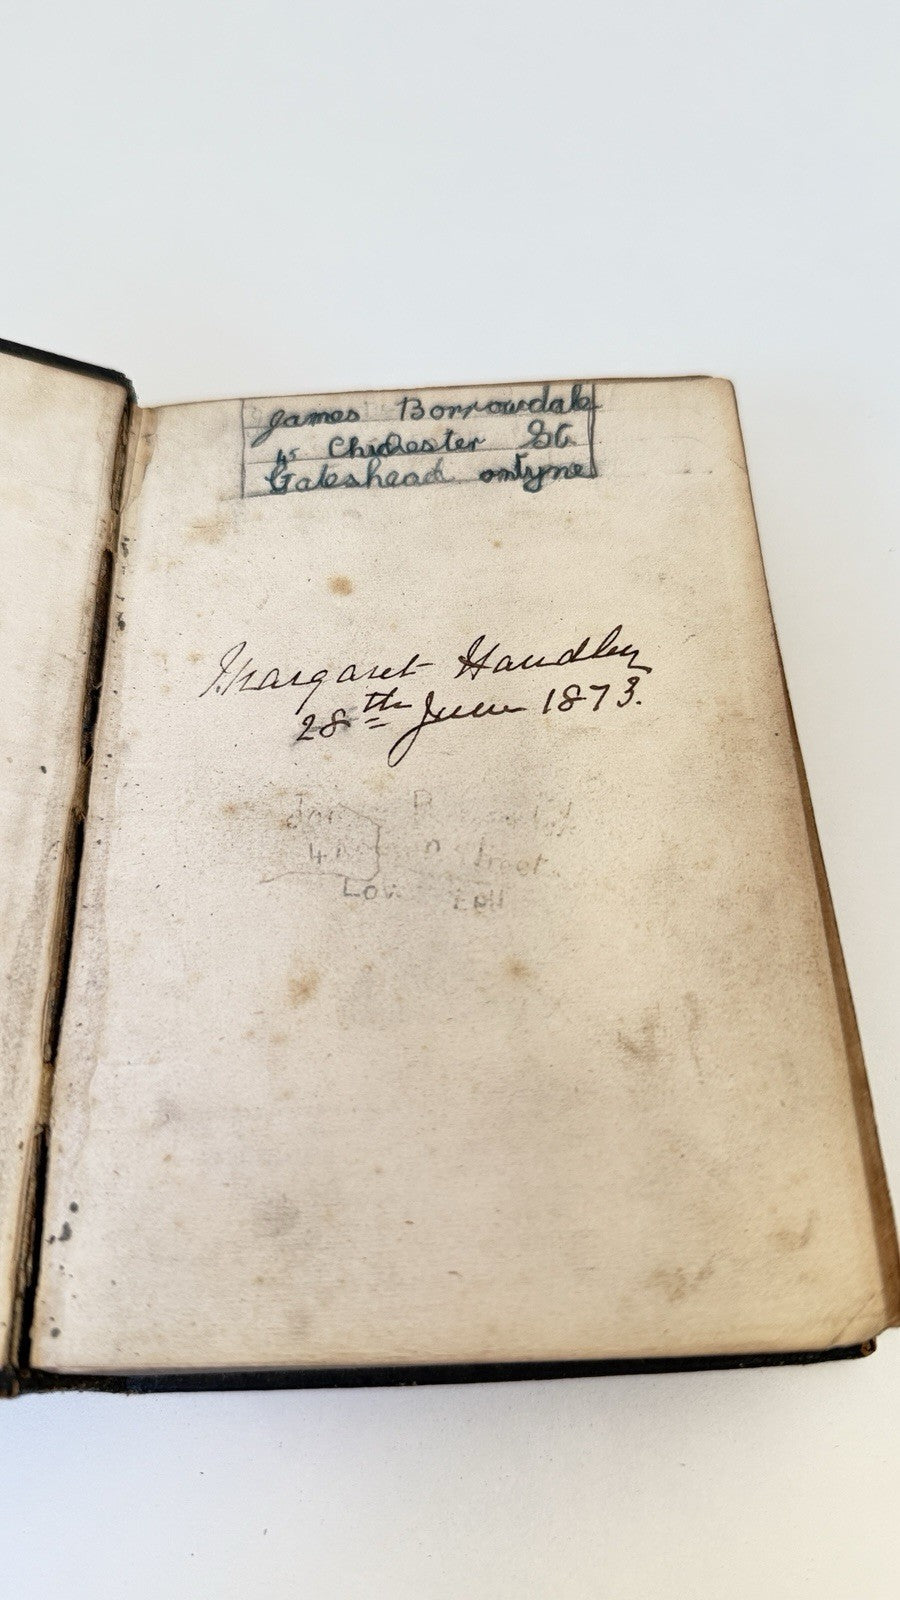 James Borrowdale
45 Chichester St
Gateshead ontyne
Margaret Handley
28th June 1873.
Low Fell